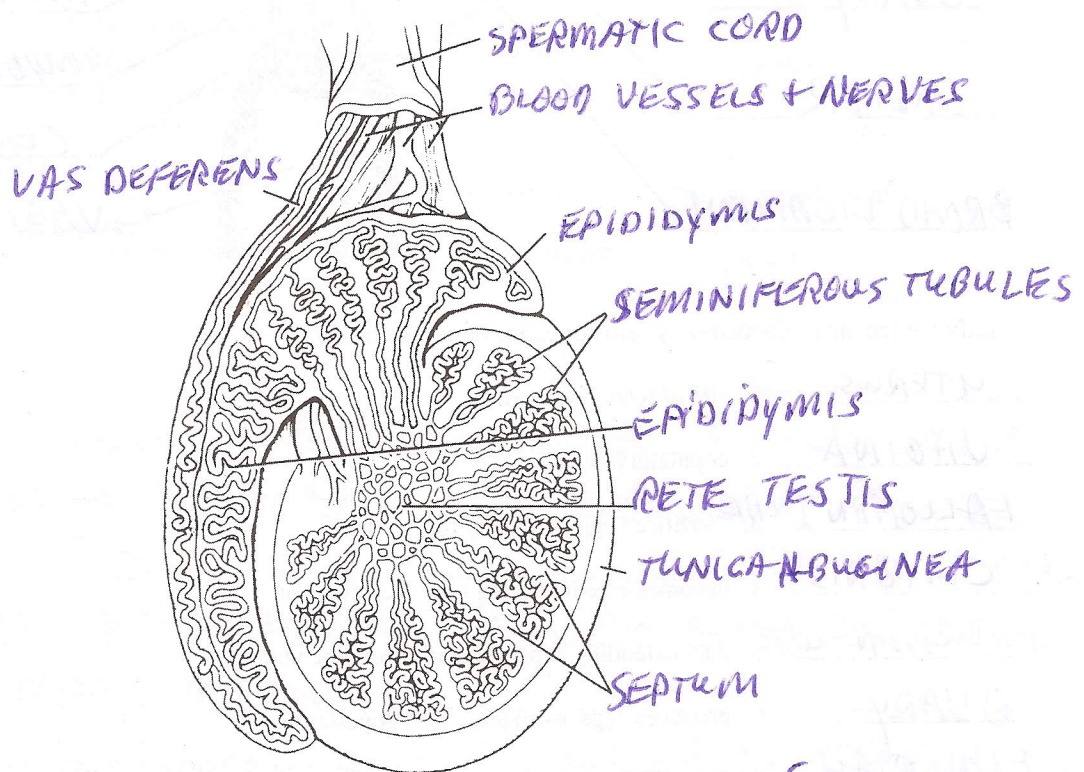 SPERMATIC CORD
BLOOD VESSELS + NERVES
VAS DEFERENS
EPIDIDYMIS
SEMINIFEROUS TUBULES
EPIDIDYMIS
RETE TESTIS
TUNICA ALBUGINEA
SEPTUM
UTERUS
VAGINA